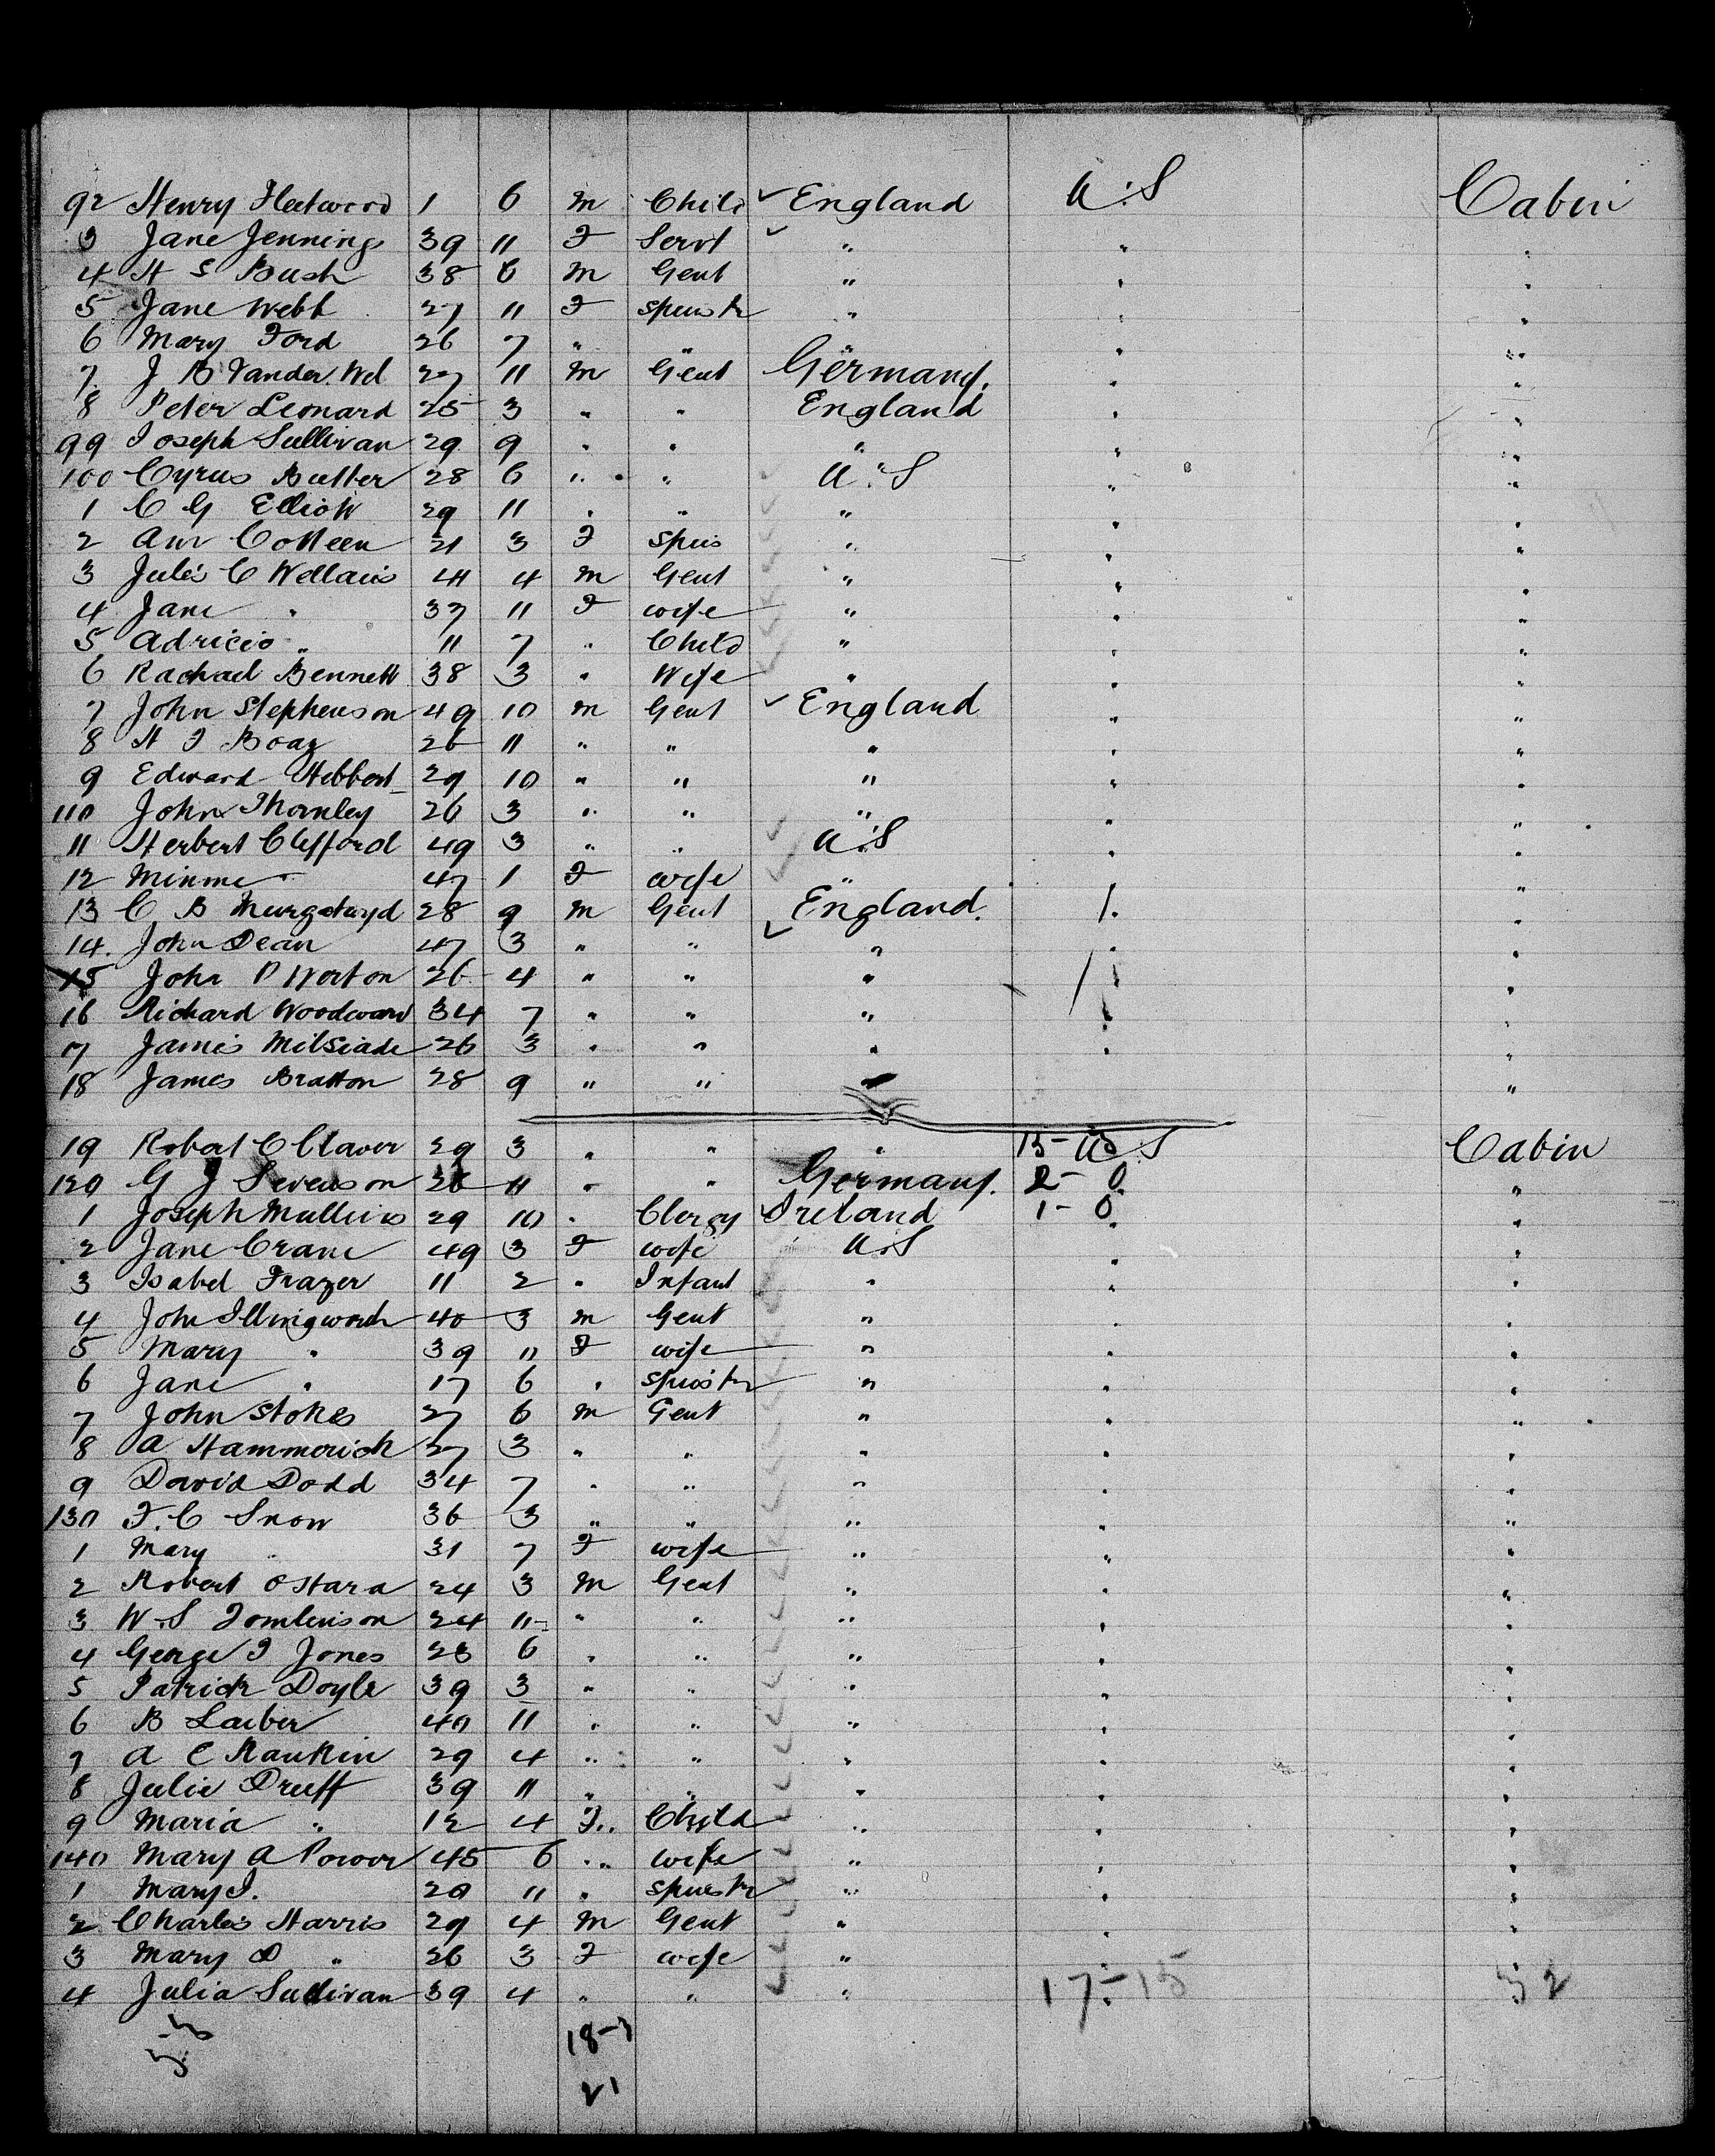 92 Henry Fleetwood 1 6 m Child ✓ England U.S Cabin
3 Jane Jennings 39 11 F Servt ✓ " " "
4 H S Bush 38 6 m Gent " " "
5 Jane Webb 27 11 F spinstr " " "
6 Mary Ford 26 7 " " " " "
7 J B Vander. Wel 27 11 m Gent Germany. " "
8 Peter Leonard 25 3 " " England " "
99 Joseph Sullivan 29 9 " " " " "
100 Cyrus Butler 28 6 " " U.S " "
1 C G Elliott 29 11 " " " " "
2 Ann 21 3 F Spin " " "
3 Jules C 44 4 m Gent " " "
4 Jane " 37 11 F wife " " "
5 " 11 7 " Child " " "
6 Rachael Bennett 38 3 " Wife " " "
7 John Stephenson 49 10 m Gent ✓ England " "
8 H F Boaz 26 11 " " " " "
9 Edward Hebbert 29 10 " " " " "
110 John Thornley 26 3 " " " " "
11 Herbert Clifford 49 3 " " U.S " "
12 Minnie " 47 1 F wife " " "
13 C B 28 9 m Gent England. 1. "
14. John Dean 47 3 " " ✓ " " "
15 John P Worton 26 4 " " " / " "
16 Richard Woodward 34 7 " " " " "
17 James 26 3 " " " " "
18 James Bratton 28 9 " " " "
19 Robert C Claver 29 3 " " " 15- U.S Cabin
120 G J Sevenson 26 11 " " Germany. 2- 0 "
1 Joseph Mullins 29 10 " Clergy ✓ Ireland 1- 0 "
2 Jane Crane 49 3 F wife U.S " "
3 Isabel Frazer 11 2 " Infant " " "
4 John Illingworth 40 3 m Gent " " "
5 Mary " 39 11 F wife " " "
6 Jane " 17 6 " spinstr " " "
7 John Stokes 27 6 m Gent " " "
8 A Hammerich 27 3 " " " " "
9 David Dodd 34 7 " " " " "
130 F. C Snow 36 3 " " " " "
1 Mary " 31 7 F wife " " "
2 Robert O Hara 24 3 m Gent " " "
3 W. S Tomlinson 24 11 " " " " "
4 George F Jones 28 6 " " " " "
5 Patrick Doyle 39 3 " " " " "
6 B Laiber 40 11 " " " " "
7 A C Rankin 29 4 " " " " "
8 Julie Druff 39 11 " " " " "
9 Maria " 12 4 F.. Child " " "
140 Mary A Power 45 6 " wife " " "
1 Mary J. 20 11 " spinstr " " "
2 Charles Harris 29 4 m Gent " " "
3 Mary D " 26 3 F wife " " "
4 Julia Sullivan 39 4 " " " 17-15 32
18-3
21